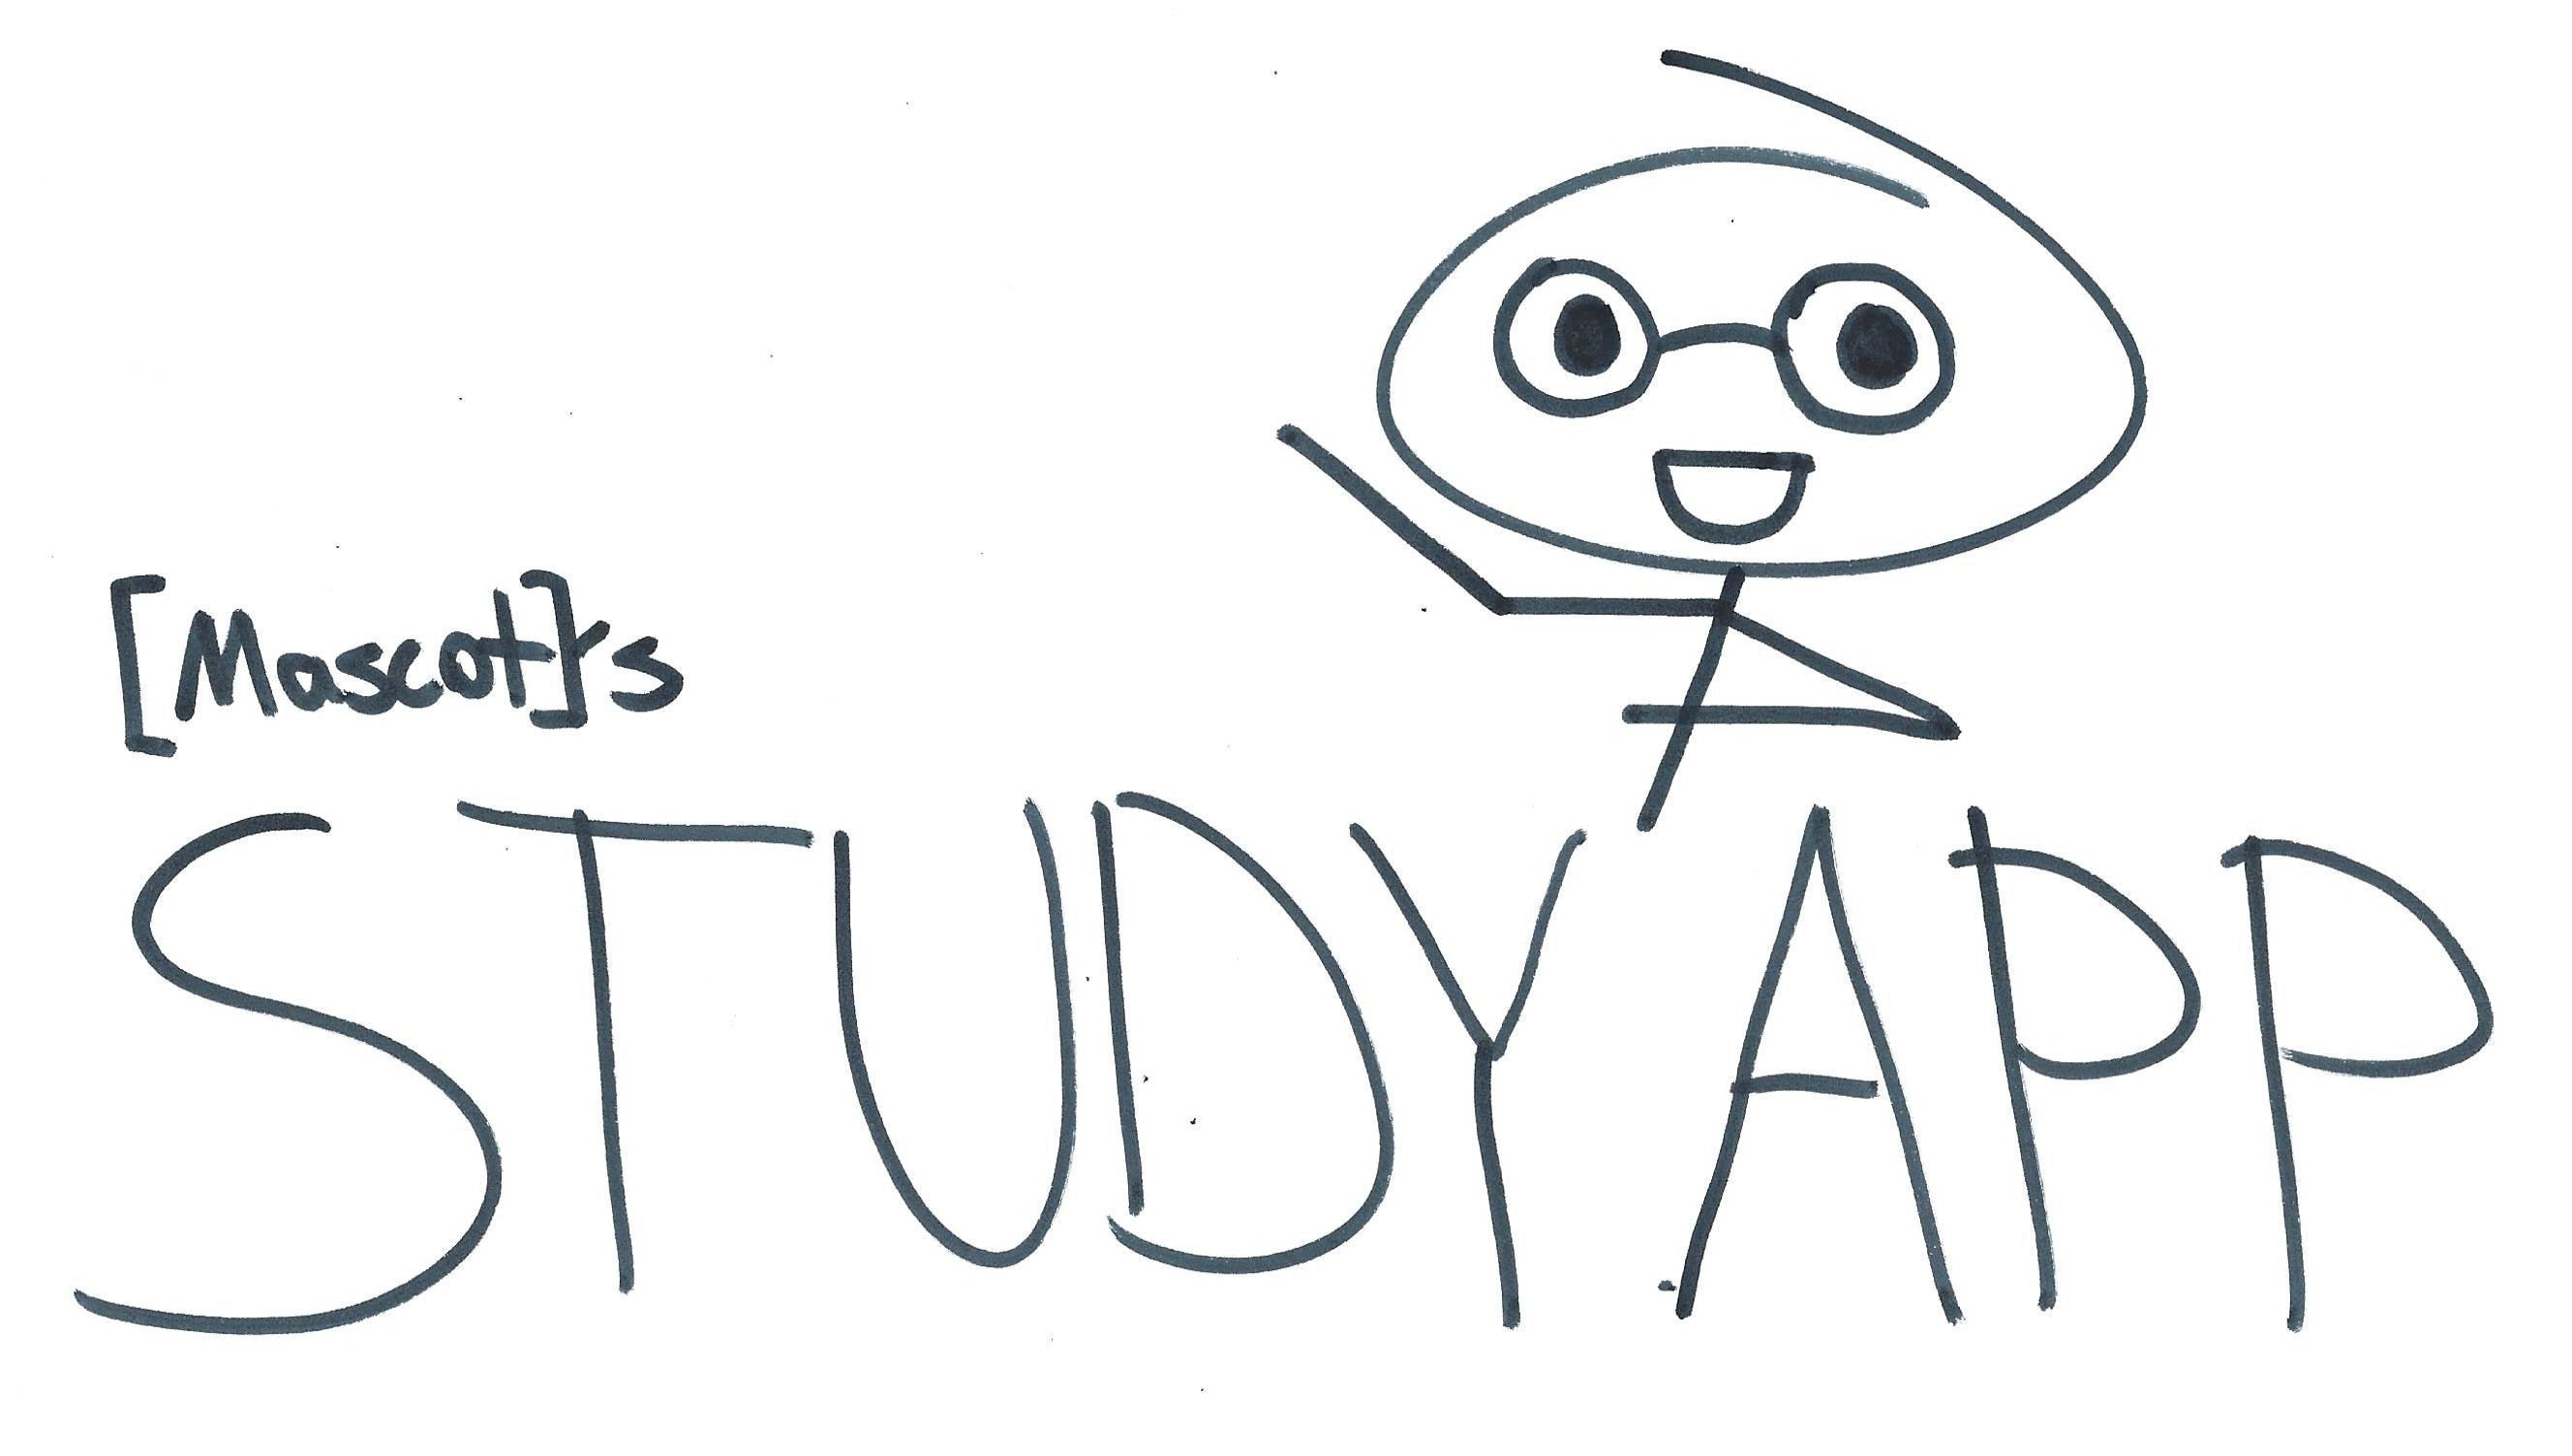 [Mascot]'s
STUDY APP